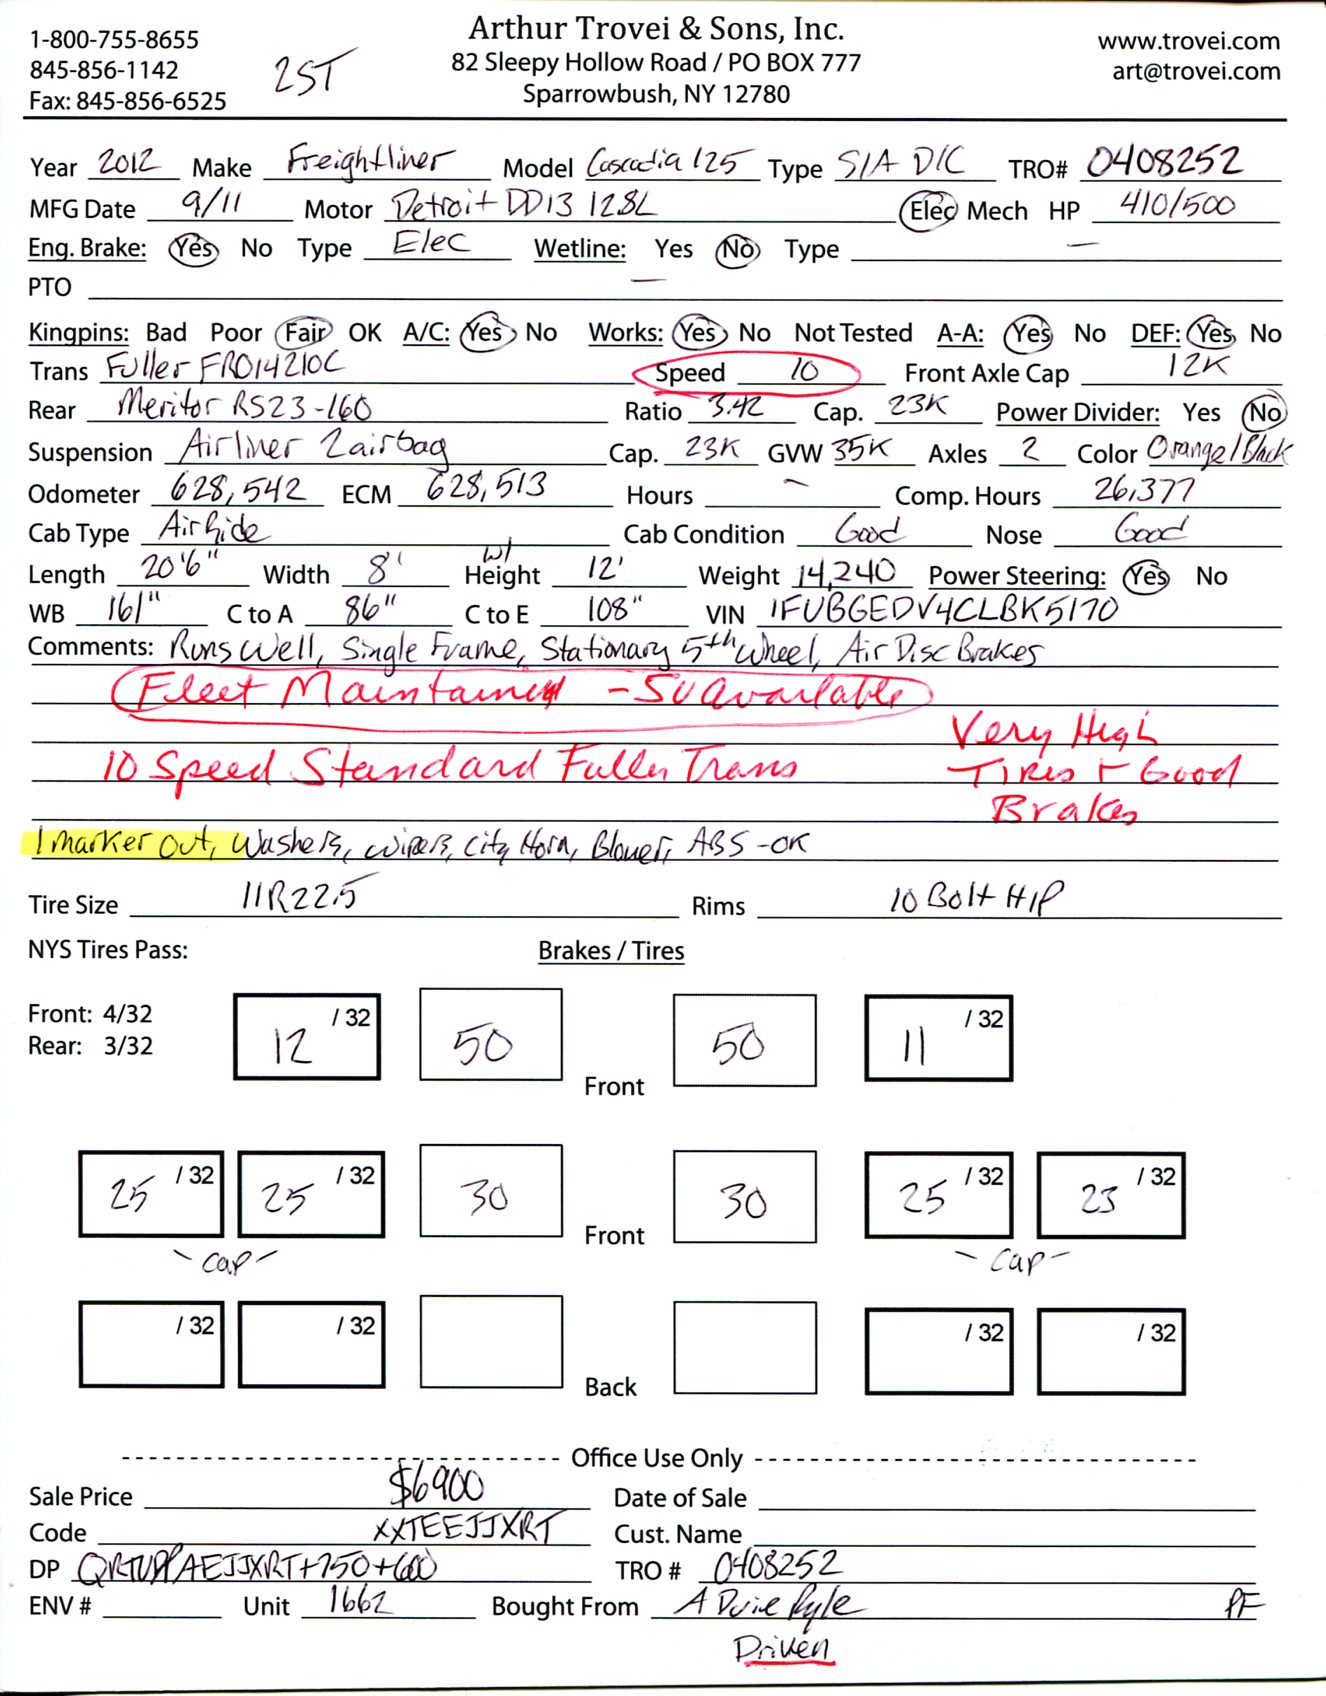 Arthur Trovei & Sons, Inc.
1-800-755-8655 82 Sleepy Hollow Road / PO BOX 777 www.trovei.com
845-856-1142 2ST Sparrowbush, NY 12780 art@trovei.com
Fax: 845-856-6525
Year 2012 Make Freightliner Model Cascadia 125 Type S/A D/C TRO# 0408252
MFG Date 9/11 Motor Detroit DD13 12.8L Elec Mech HP 410/500
Eng. Brake: Yes No Type Elec Wetline: Yes No Type —
PTO —
Kingpins: Bad Poor Fair OK A/C: Yes No Works: Yes No Not Tested A-A: Yes No DEF: Yes No
Trans Fuller FRO14210C Speed 10 Front Axle Cap 12K
Rear Meritor RS23-160 Ratio 3.42 Cap. 23K Power Divider: Yes No
Suspension Airliner 2airbag Cap. 23K GVW 35K Axles 2 Color Orange/Black
Odometer 628,542 ECM 628,513 Hours — Comp. Hours 26,377
Cab Type AirRide Cab Condition Good Nose Good
Length 20'6" Width 8' w/ Height 12' Weight 14,240 Power Steering: Yes No
WB 161" C to A 86" C to E 108" VIN 1FUBGEDV4CLBK5170
Comments: Runs Well, Single Frame, Stationary 5th Wheel, Air Disc Brakes
Fleet Maintained - 50 available
Very High
10 Speed Standard Fuller Trans Tires + Good
Brakes
1 marker out, Washers, wipers, City Horn, Blower, ABS - OK
Tire Size 11R22.5 Rims 10 Bolt H/P
NYS Tires Pass: Brakes / Tires
Front: 4/32 12 /32 50 50 11 /32
Rear: 3/32
Front
25 /32 25 /32 30 30 25 /32 23 /32
Front
- Cap - - Cap -
/32 /32 /32 /32
Back
Office Use Only
Sale Price $6900 Date of Sale
Code XXTEEJJXRT Cust. Name
DP TRO # 0408252
ENV # Unit 1662 Bought From A Duie Pyle PF
Driven